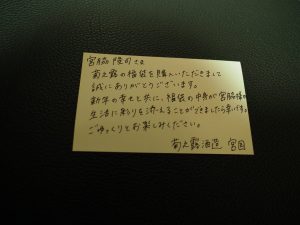 宮脇 陵司さま
菊之露の福袋を購入いただきまして
誠にありがとうございます。
新年の幸せと共に、福袋の中身が宮脇様の
生活に彩りを添えることができましたら幸いです。
ごゆっくりとお楽しみください。
菊之露酒造 宮国